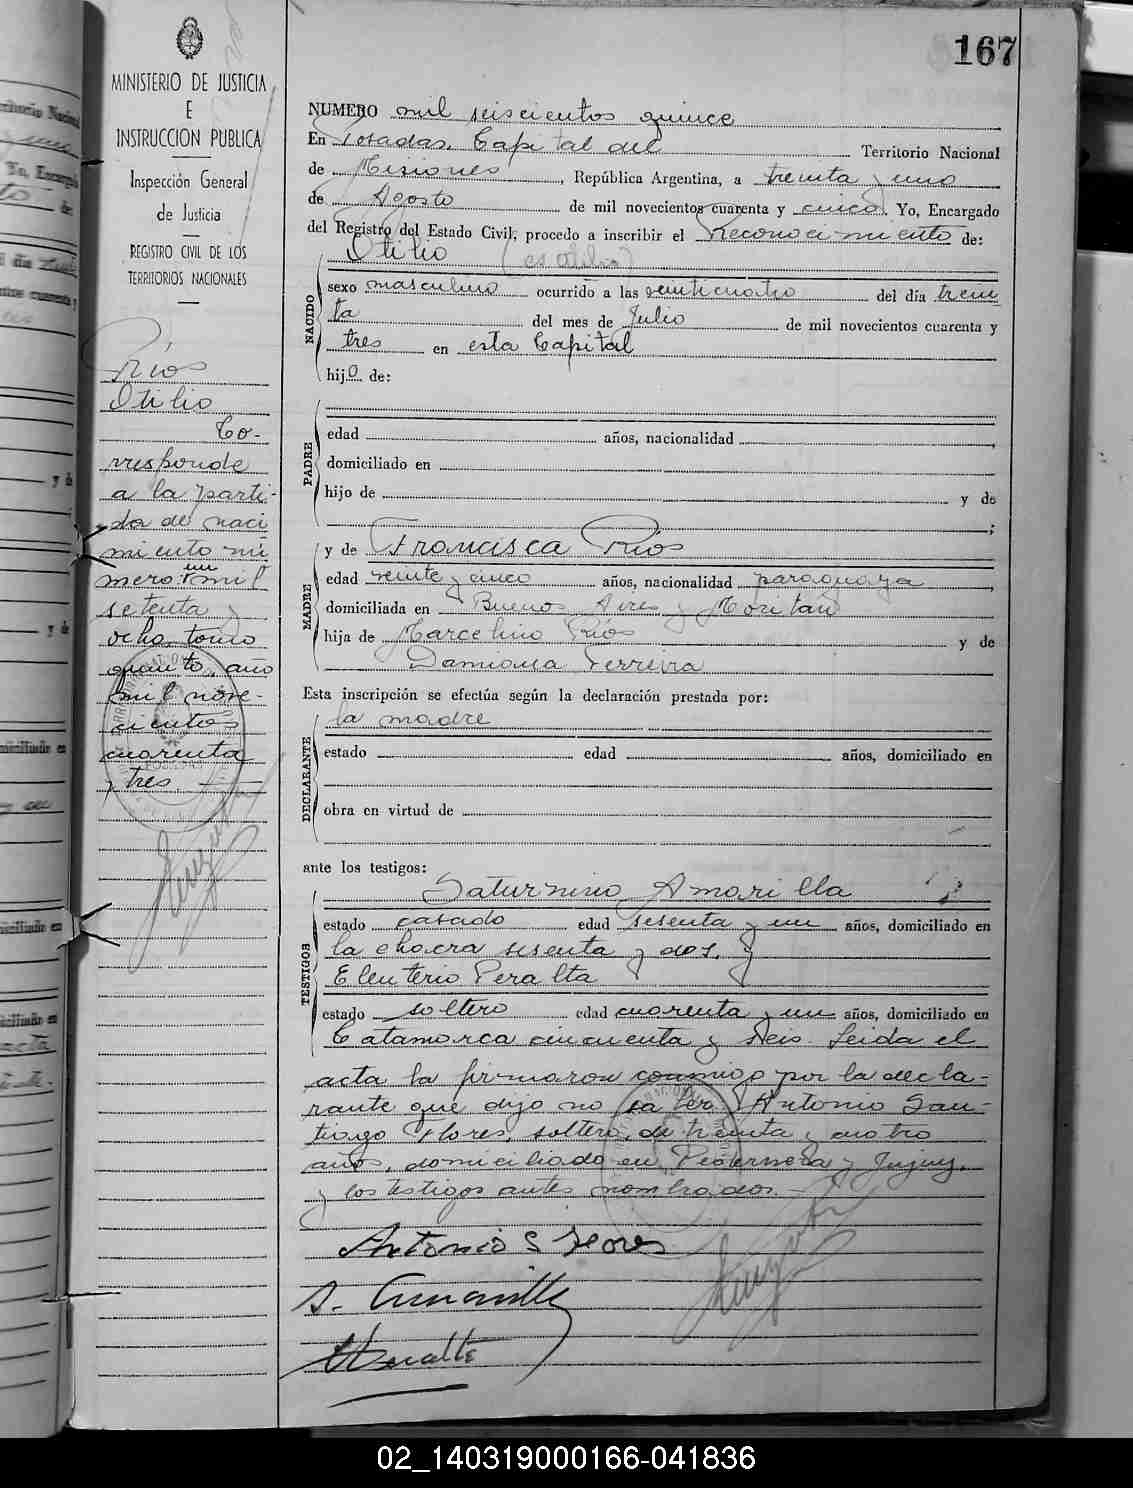 167
MINISTERIO DE JUSTICIA
E
INSTRUCCION PUBLICA
Inspección General
de Justicia
REGISTRO CIVIL DE LOS
TERRITORIOS NACIONALES
Ríos
Otilio
Co-
rresponde
a la parti-
da de naci
miento nú
mero un mil
setenta y
ocho, tomo
quinto, año
mil nove-
cientos
cuarenta
y tres.
NUMERO mil seiscientos quince
En Posadas, Capital del Territorio Nacional
de Misiones, República Argentina, a treinta y uno
de Agosto de mil novecientos cuarenta y cinco. Yo, Encargado
del Registro del Estado Civil, procedo a inscribir el Reconocimiento de:
Otilio
NACIDO
sexo masculino ocurrido a las veinticuatro del día trein
ta del mes de Julio de mil novecientos cuarenta y
tres en esta Capital
hijo de:
PADRE
edad años, nacionalidad
domiciliado en
hijo de y de
;
MADRE
y de Francisca Ríos
edad veinte y cinco años, nacionalidad paraguaya,
domiciliada en Buenos Aires y Moritan
hija de Marcelino Ríos y de
Damiana Ferreira
Esta inscripción se efectúa según la declaración prestada por:
la madre
DECLARANTE
estado edad años, domiciliado en
obra en virtud de
ante los testigos:
Saturnino Amarilla
TESTIGOS
estado casado edad sesenta y un años, domiciliado en
la chacra sesenta y dos. y
Eleuterio Peralta
estado soltero edad cuarenta y un años, domiciliado en
Catamarca cincuenta y seis. Leida el
acta la firmaron conmigo por la decla-
rante que dijo no saber Antonio San-
tiago Flores, soltero, de treinta y cuatro
años, domiciliado en Pedernera y Jujuy,
y los testigos antes nombrados.
Antonio S Flores
S. Amarilla
02_140319000166-041836